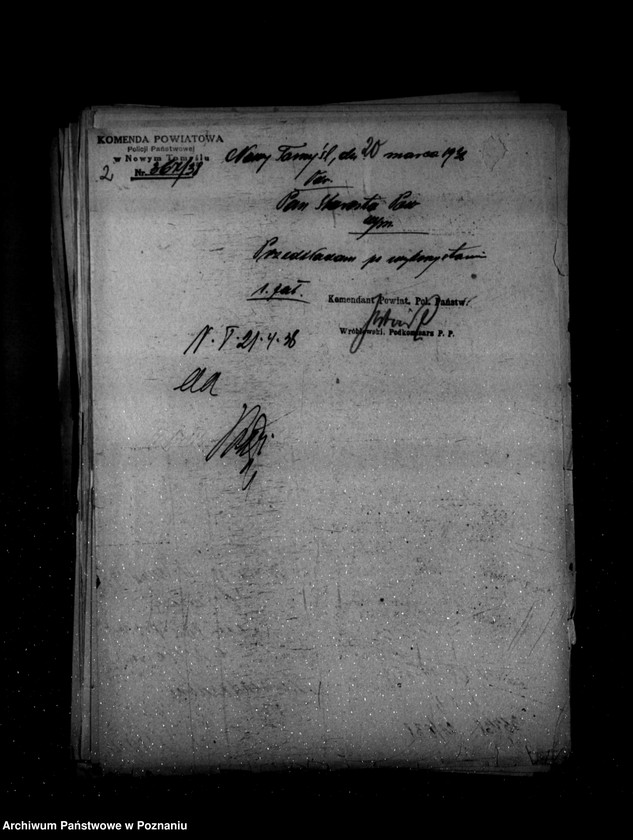 KOMENDA POWIATOWA
Policji Państwowej
w Nowym Tomyślu
2 Nr. 367/38
Nowy Tomyśl, dn. 20 marca 1938
Pan Starosta Pow
Przedkładam po wykorzystaniu
1. zał.
Komendant Powiat. Pol. Państw.
Wróblewski, Podkomisarz P. P.
N. T. 21.4.38
aa
Archiwum Państwowe w Poznaniu